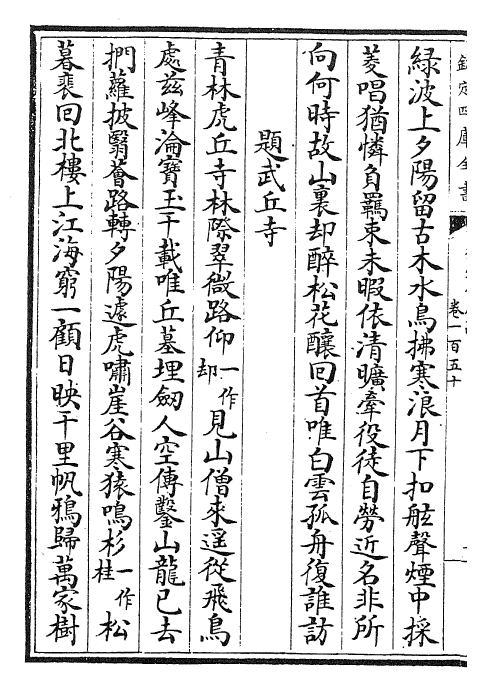 欽定四庫全書
卷一百五十
綠波上夕陽留古木水鳥拂寒浪月下扣舷聲煙中採
菱唱猶憐負羈束未暇依清曠牽役徒自勞近名非所
向何時故山裏却醉松花釀回首唯白雲孤舟復誰訪
題武丘寺
青林虎丘寺林際翠微路仰一作却見山僧來遥從飛鳥
處兹峰淪寶玉千載唯丘墓埋劒人空傳鑿山龍已去
捫蘿披翳薈路轉夕陽遽虎嘯崖谷寒猿鳴杉一作桂松
暮裵回北樓上江海窮一顧日映千里帆鴉歸萬家樹